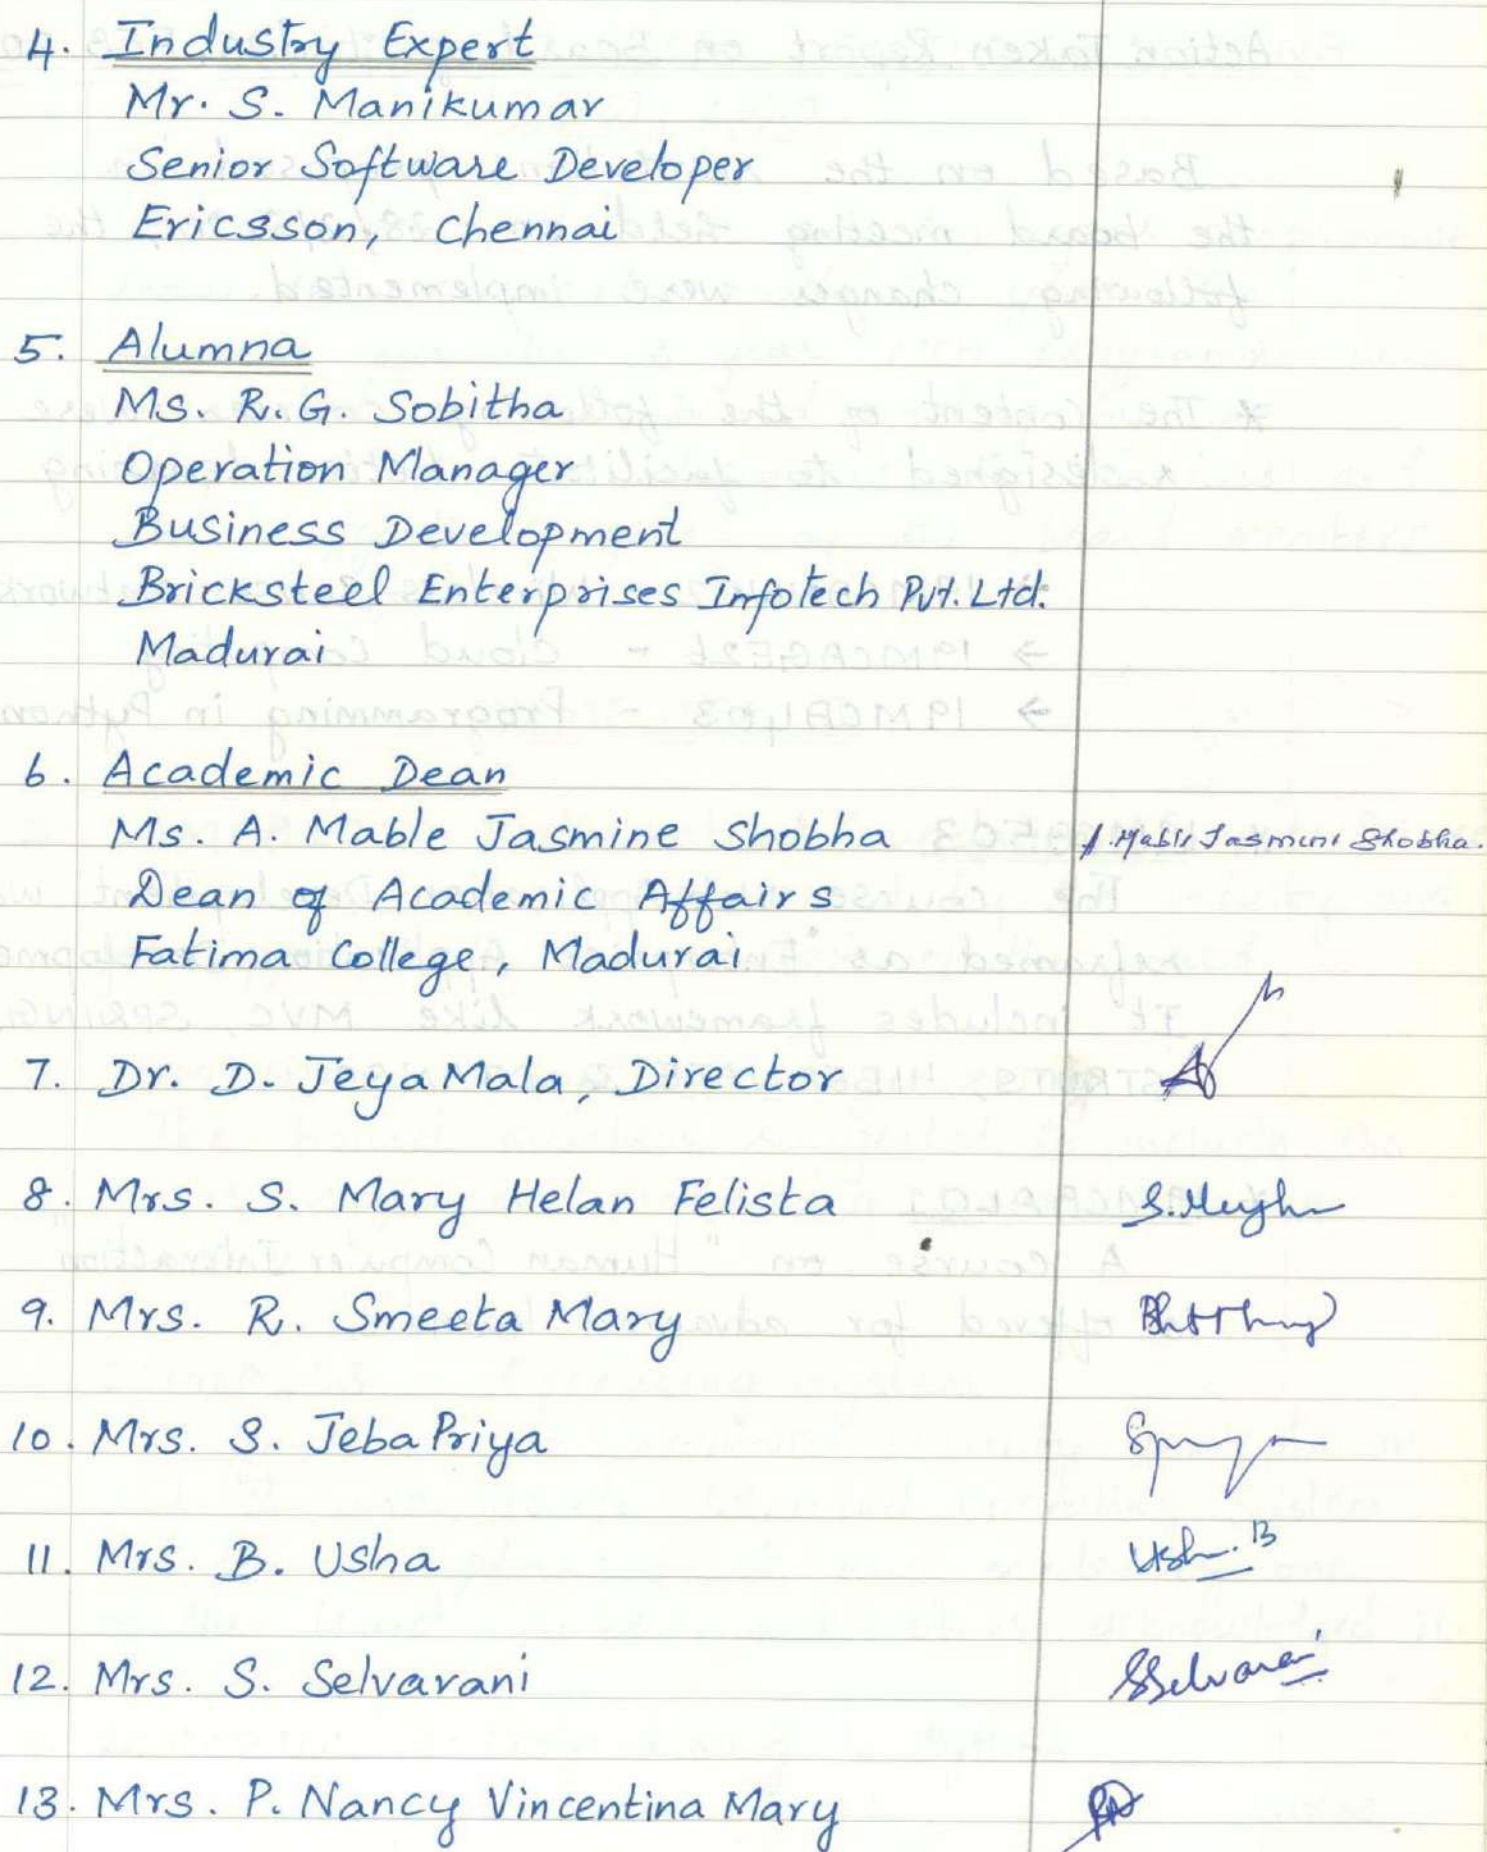 4. Industry Expert
Mr. S. Manikumar
Senior Software Developer
Ericsson, Chennai
5. Alumna
Ms. R.G. Sobitha
Operation Manager
Business Development
Bricksteel Enterprises Infotech Pvt. Ltd.
Madurai
6. Academic Dean
Ms. A. Mable Jasmine Shobha A. Mable Jasmine Shobha.
Dean of Academic Affairs
Fatima College, Madurai
7. Dr. D. Jeya Mala, Director
8. Mrs. S. Mary Helan Felista
9. Mrs. R. Smeeta Mary
10. Mrs. S. Jeba Priya
11. Mrs. B. Usha Usha. B
12. Mrs. S. Selvarani SSelvarani
13. Mrs. P. Nancy Vincentina Mary